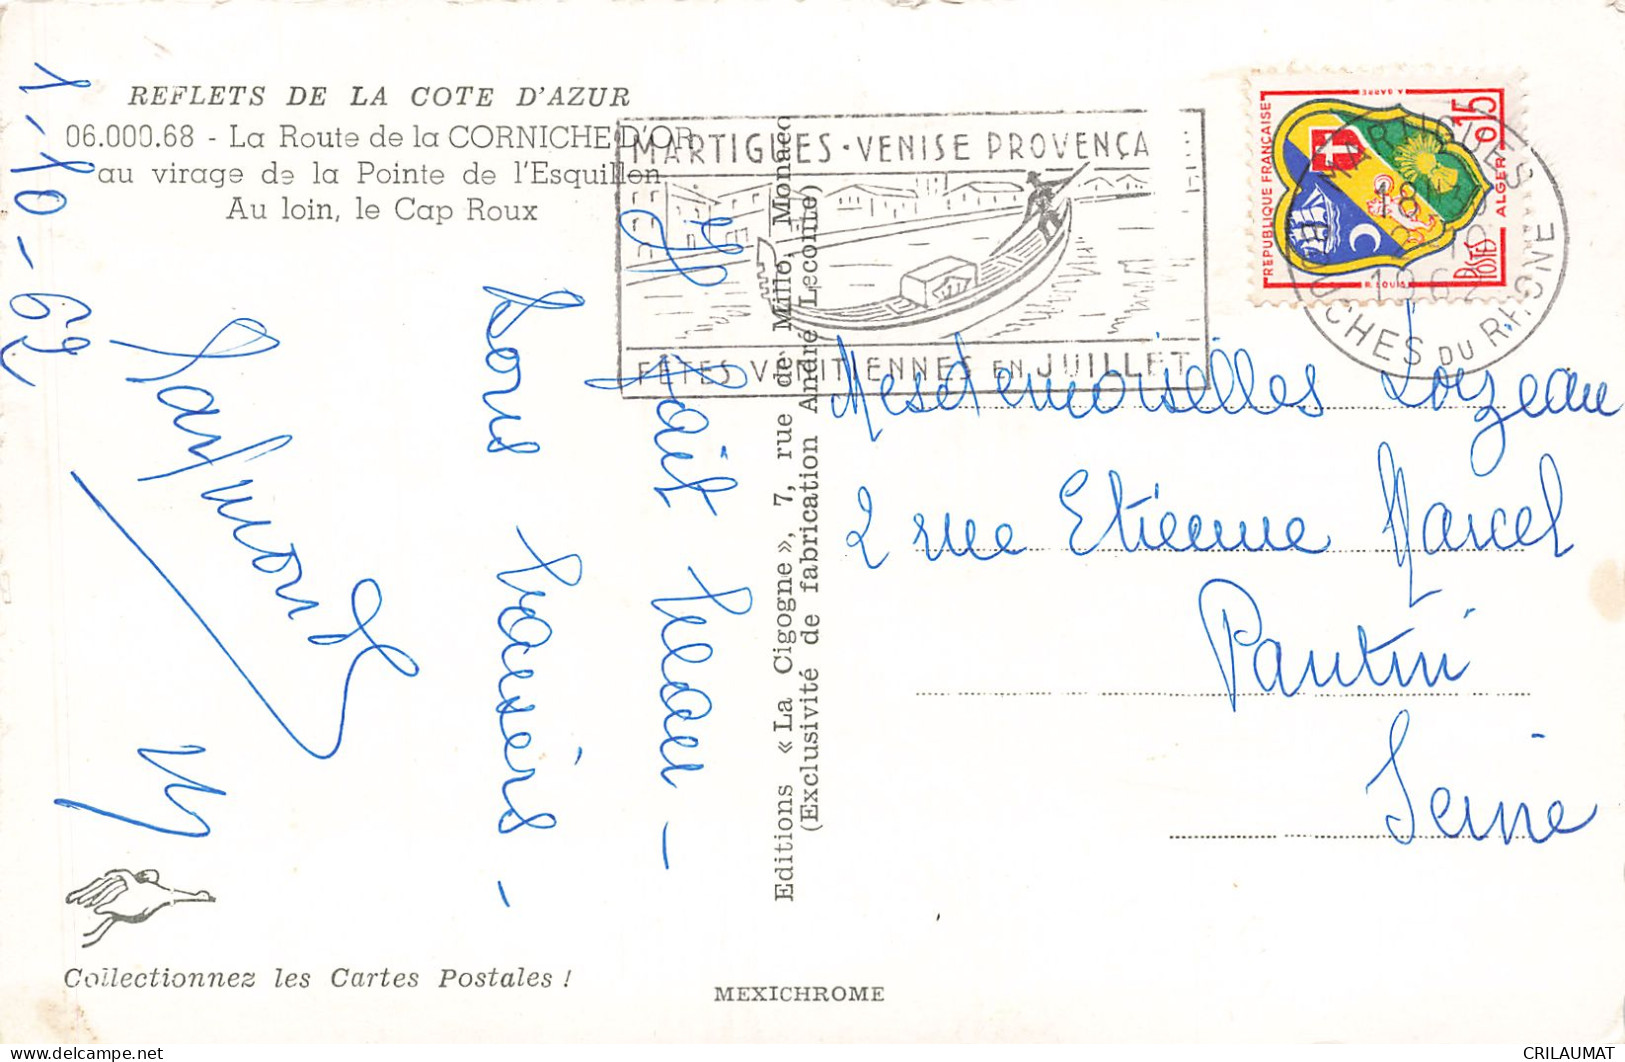 REFLETS DE LA COTE D'AZUR
06.000.68 - La Route de la CORNICHE D'OR
au virage de la Pointe de l'Esquillon
Au loin, le Cap Roux
1-10-62
Il fait beau -
Bons baisers -
Raymonde
Collectionnez les Cartes Postales !
MEXICHROME
Editions « La Cigogne », 7, rue de Millo, Monaco
(Exclusivité de fabrication André Leconte)
MARTIGUES · VENISE PROVENÇA
FÊTES VENITIENNES EN JUILLET
A BARRE
REPUBLIQUE FRANÇAISE
0,15
ALGER
POSTES
R. LOUIS
MARTIGUES
18H
1962
BOUCHES DU RHONE
Mesdemoiselles Lorzeau
2 rue Etienne Marcel
Pantin
Seine
CRILAUMAT